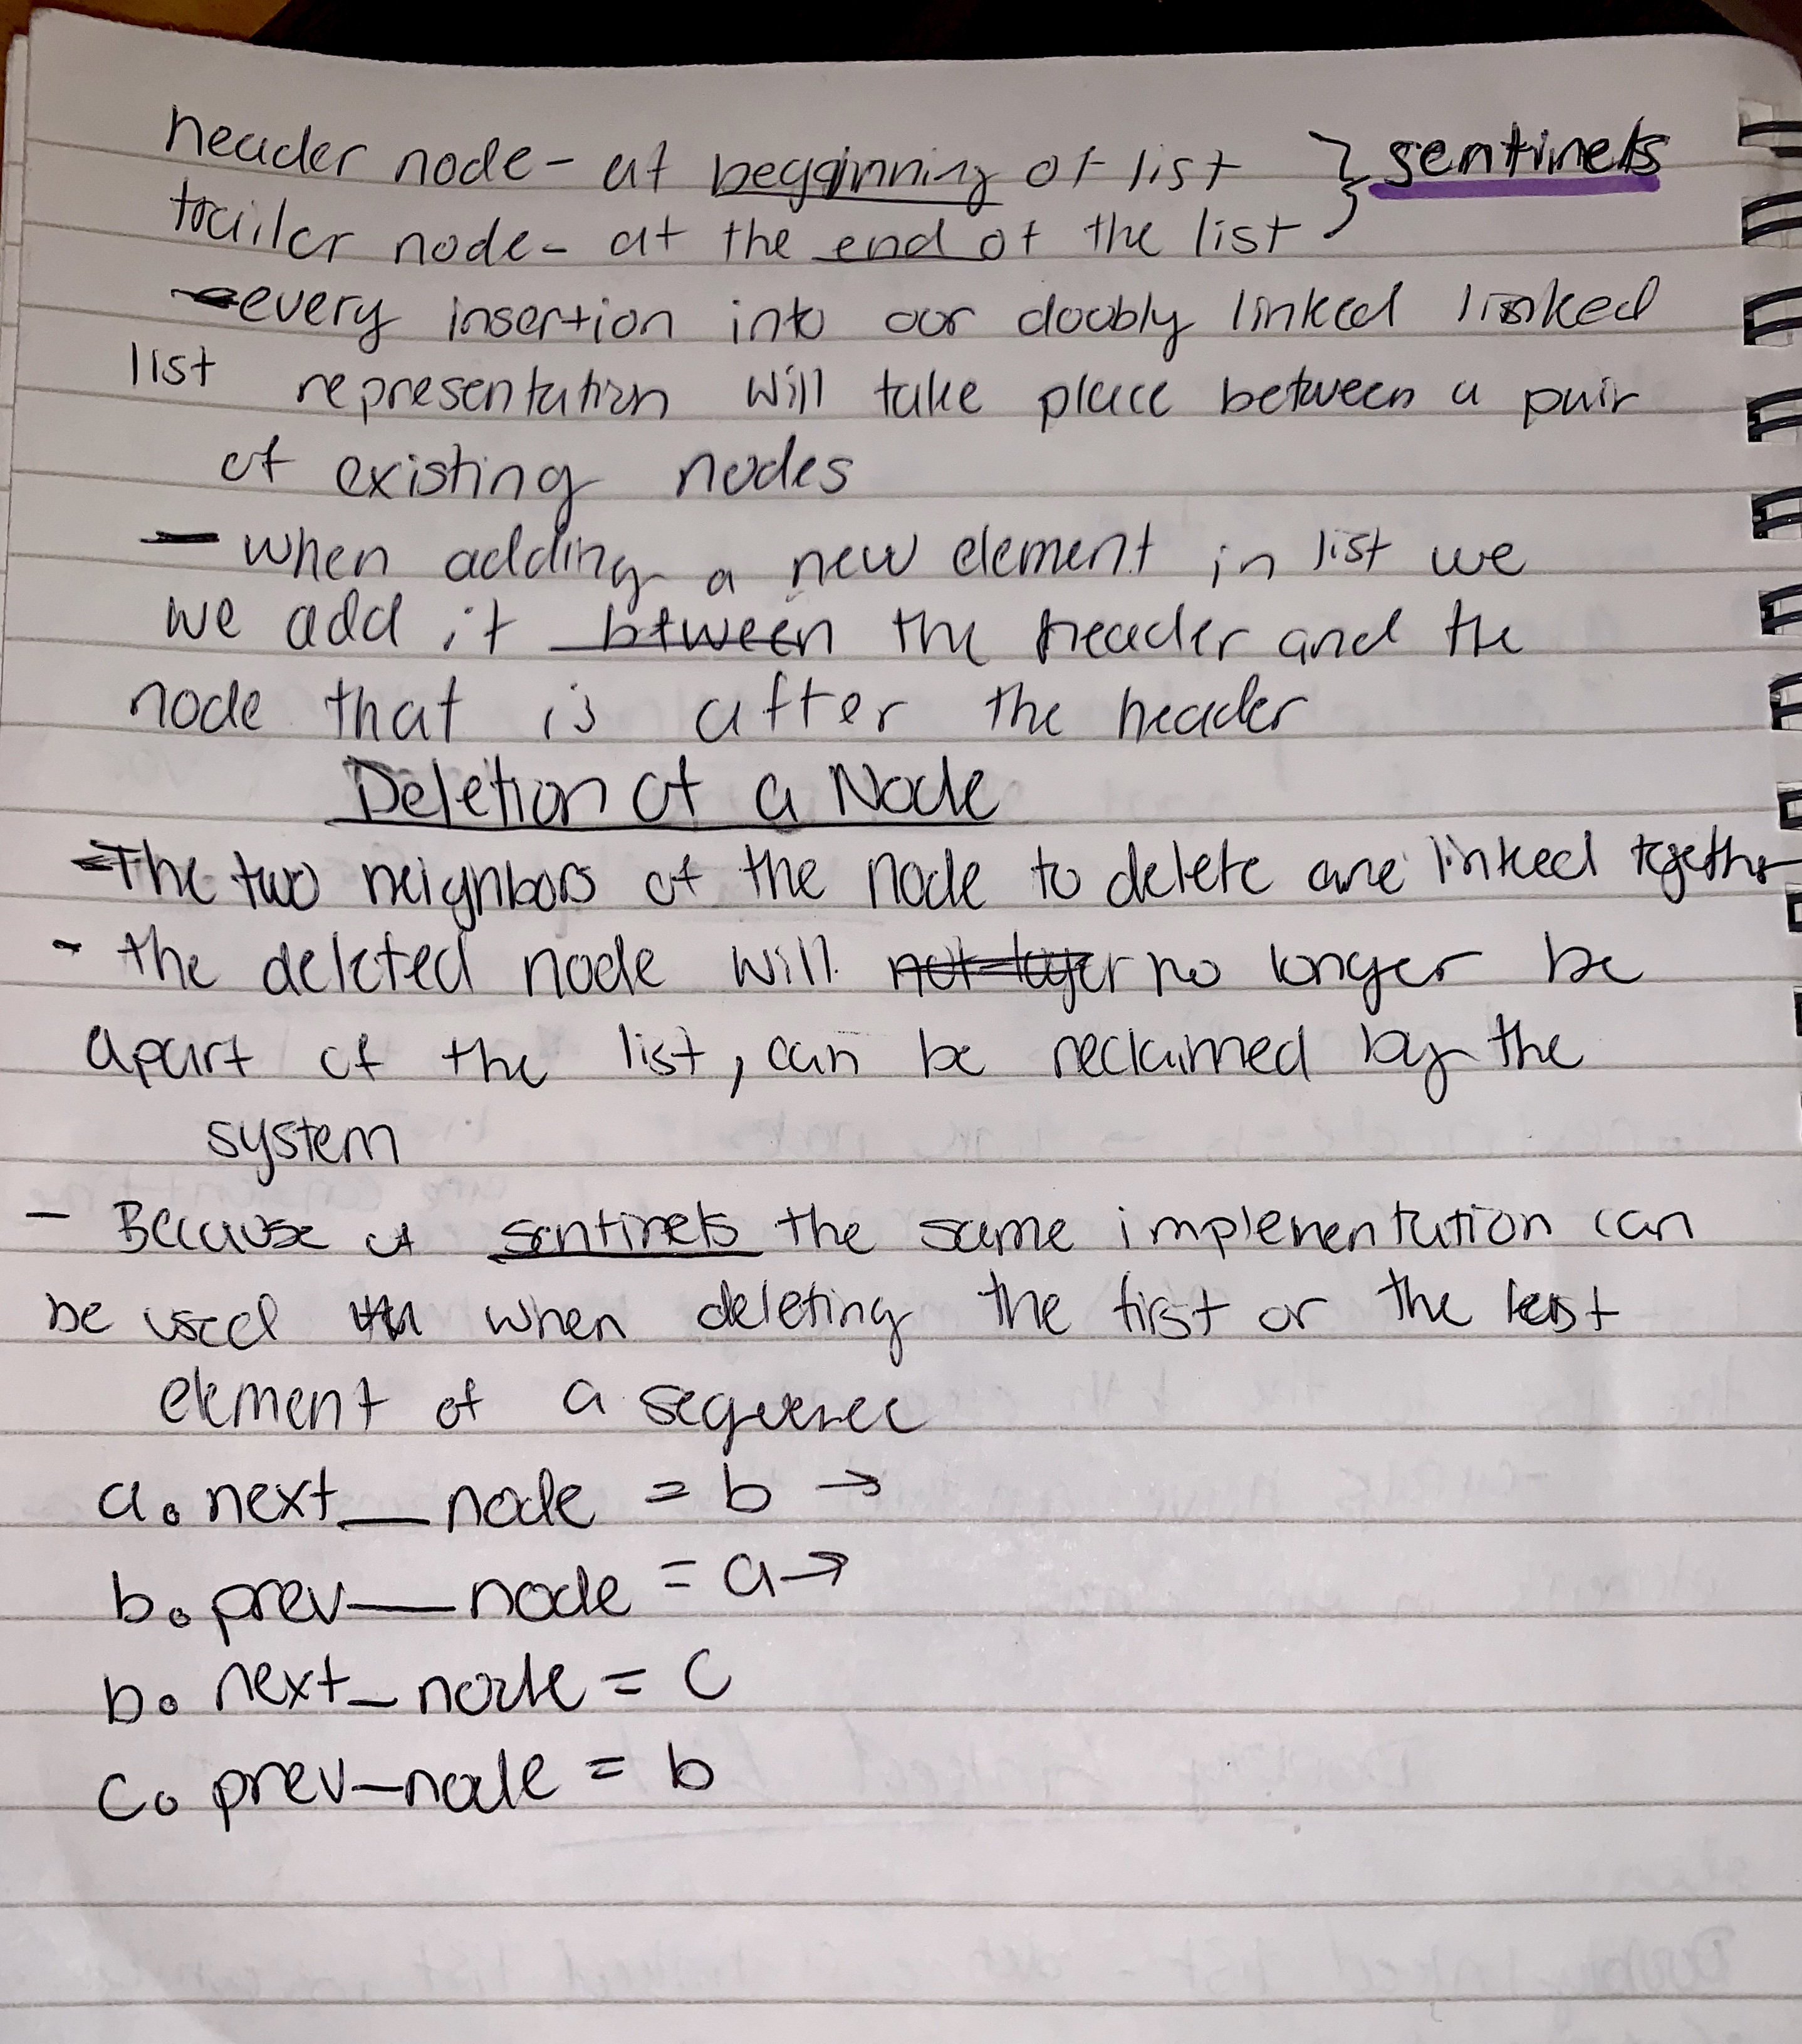 header node - at begginning of list } sentinels
trailer node - at the end of the list
- every insertion into our doubly linked linked
list representation will take place between a pair
of existing nodes
- when adding a new element in list we
we add it btween the header and the
node that is after the header
Deletion of a Node
- The two neighbors of the node to delete are linked together
- the deleted node will no longer be
apart of the list, can be reclaimed by the
system
- Because of sentinels the same implementation can
be used when deleting the first or the last
element of a sequence
a.next_node = b →
b.prev_node = a →
b.next_node = c
c.prev_node = b